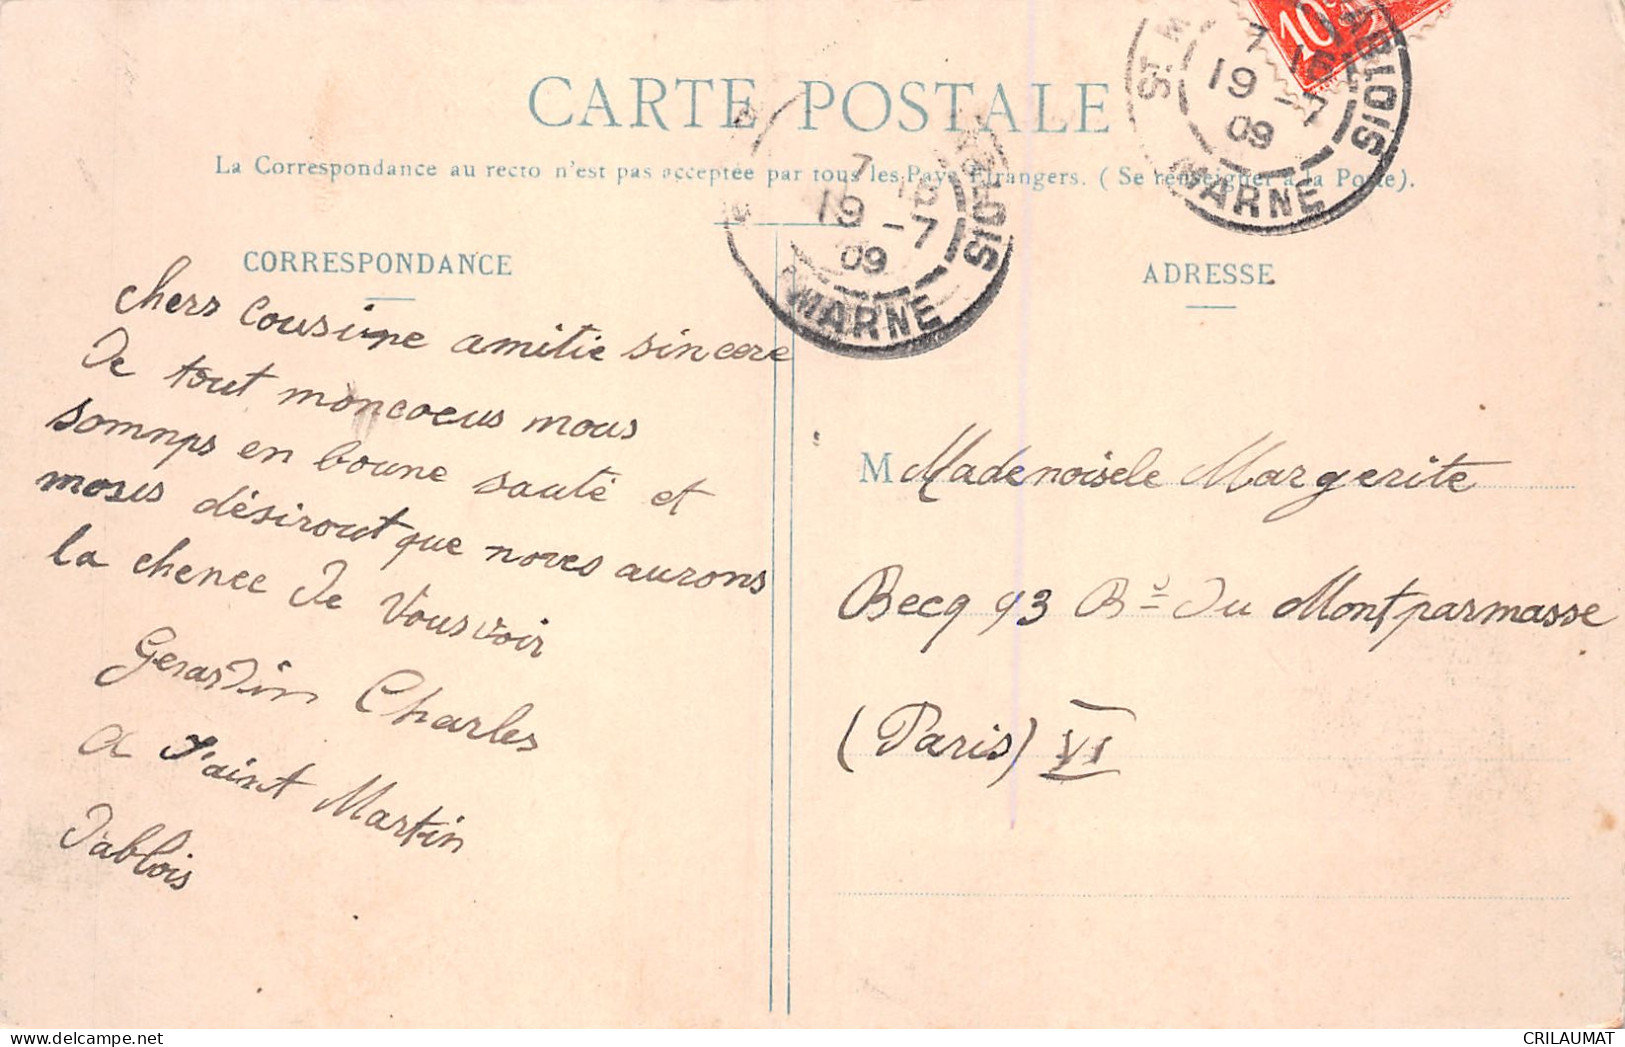 CARTE POSTALE
La Correspondance au recto n'est pas acceptée par tous les Pays Etrangers. ( Se renseigner à la Poste).
CORRESPONDANCE
chers cousine amitie sincere
De tout moncoeus mous
somnps en boune sauté et
moses désirout que noves aurons
la chence de vous voir
Gerardin Charles
a Saint Martin
d'ablois
ADRESSE
M Mademoisele Margerite
Becq 93 Bd du Montparmasse
(Paris) VI
10c
ST M ABLOIS
7 15
19 -7
09
MARNE
7 15
19 -7
09
BLOIS
MARNE
CRILAUMAT